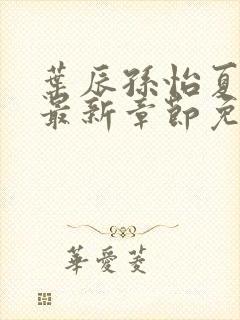 葉辰孫怡夏
最新章節免
華愛菱